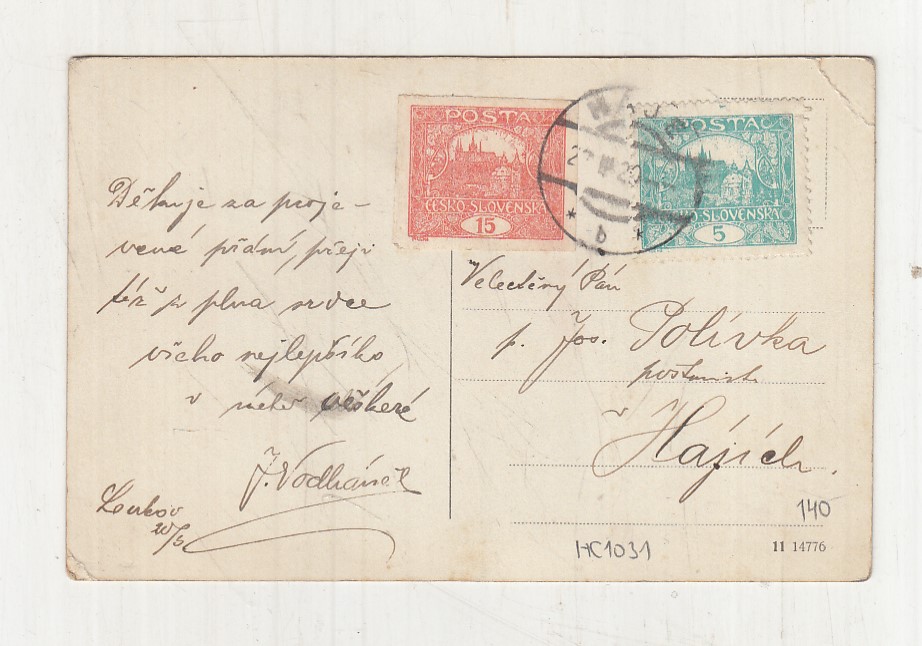 POŠTA
ČESKO-SLOVENSKÁ
15
POŠTA
SLOVENSKÁ
5
b
Děkuje za proje-
vené přání, přeji
též z plna srdce
všeho nejlepšího
v úctě veškeré
J. Vodháněl
Lukov
20/3
Velectěný Pán
p. Jos. Polívka
v Hájích.
140
HC1031
11 14776